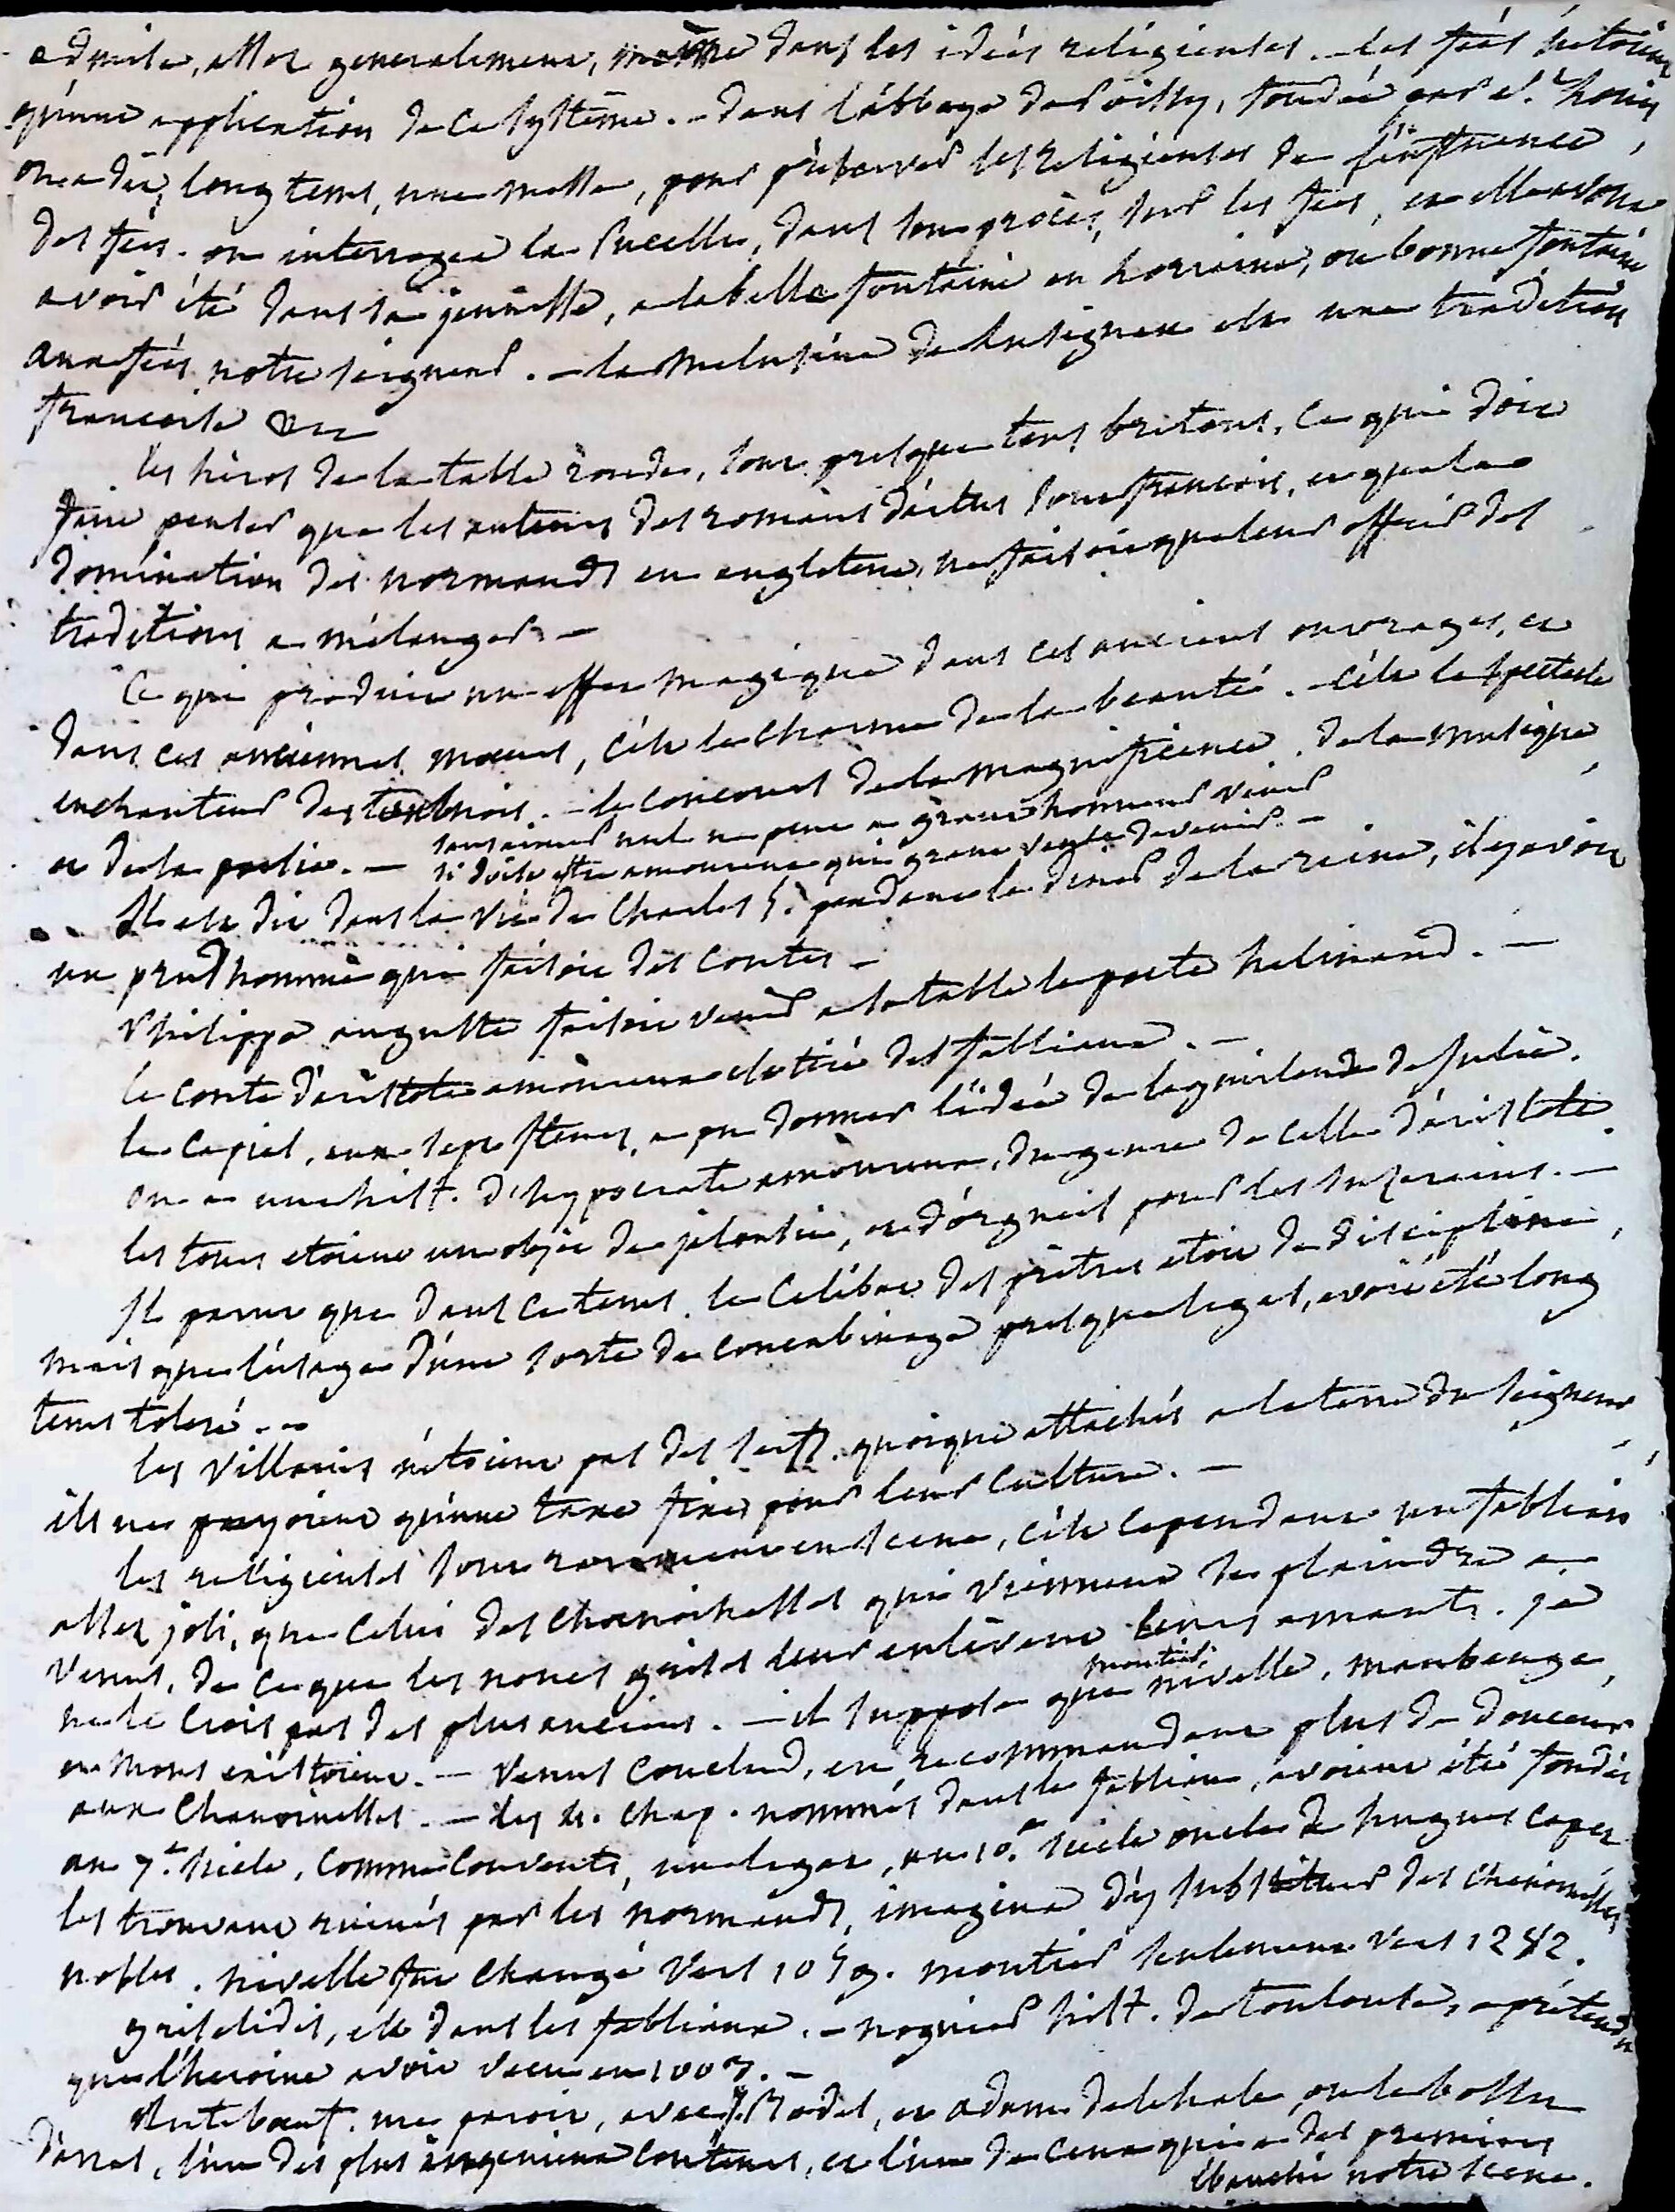 admise, assez generalement, même dans les idées religieuses. – les fées n'etoient
qu'une application de ce systême. – dans l'abbaye de Poissy, fondée par St. Louis
on a dit, longtems, une messe, pour préserver les religieuses de l'influence,
des fées. on interrogea la Pucelle, dans son procès, sur les fées, et elle avoua
avoir été dans sa jeunesse, a la belle fontaine en Lorraine, ou bonne fontaine
aux fées notre seigneur. – la Melusine de Lusignan est une tradition
françoise &c
les héros de la table ronde, sont presque tous bretons, ce qui doit
faire penser que les auteurs des romans d'artus sont françois, et que la
domination des normands en angleterre, ne faisoit que leur offrir des
traditions a mélanger. –
Ce qui produit un effet magique dans ces anciens ouvrages, et
dans ces anciennes mœurs, c'est le charme de la beauté. – c'est le spectacle
enchanteur des tournois. – le concours de la magnificence, de la musique
et de la poesie. – sans aimer nul ne peut a grant honneur venir
si doit estre amoureux qui grant veult devenir. –
Il est dit dans la vie de Charles 5. pendant le diner de la reine, il y avoit
un prud'homme qui faisoit des contes –
Philippe auguste faisoit venir a sa table le poete helinand. –
le conte d'aristote amoureux est tiré des fabliaux. –
le capiel, aux sept fleurs, a pu donner l'idée de la guirlande de Julie.
on a une hist. d'hypocrate amoureux, du genre de celle d'aristote.
les tours etoient un objet de jalousie, et d'orgueil pour les suzerains. –
Il parut que dans ce tems. le celibat des prêtres etoit de discipline,
mais que l'usage d'une sorte de concubinage presque legal, avoit été long
tems toleré. –
les villains n'etoient pas des serfs. quoique attachés a la terre du seigneur
ils ne payoient qu'une taxe fixe pour leur culture. –
les religieuses sont rarement en scene, c'est cependant un fabliau
assez joli, que celui des chanoinesses qui viennent se plaindre a
venus, de ce que les nones grises leur enlèvent leurs amants. je
ne le crois pas des plus anciens. – il suppose que montier, nivelle, maubeuge,
et mons existoient. – Venus conclud, en recommandant plus de douceur
aux chanoinesses. – les 4. chap. nommés dans le fabliau, avoient été fondés
au 7.e siècle, comme couvents, un legat, au 10.e siecle oncle de hugues capet
les trouvant ruinés par les normands, imagina d'y substituer des chanoinesses
nobles. nivelle fut changé vers 1059. montier seulement vers 1282.
griselidis, est dans les fabliaux. – noguier hist. de toulouse, a prétendu
que l'heroine avoit vecu en 1003. –
Rutebœuf. me paroit, avec J. Bodel, et adam de lehale, ou le bossu
d'arras, l'un des plus ingenieux conteurs, et l'un de ceux qui a des premiers
ébauché notre scene.